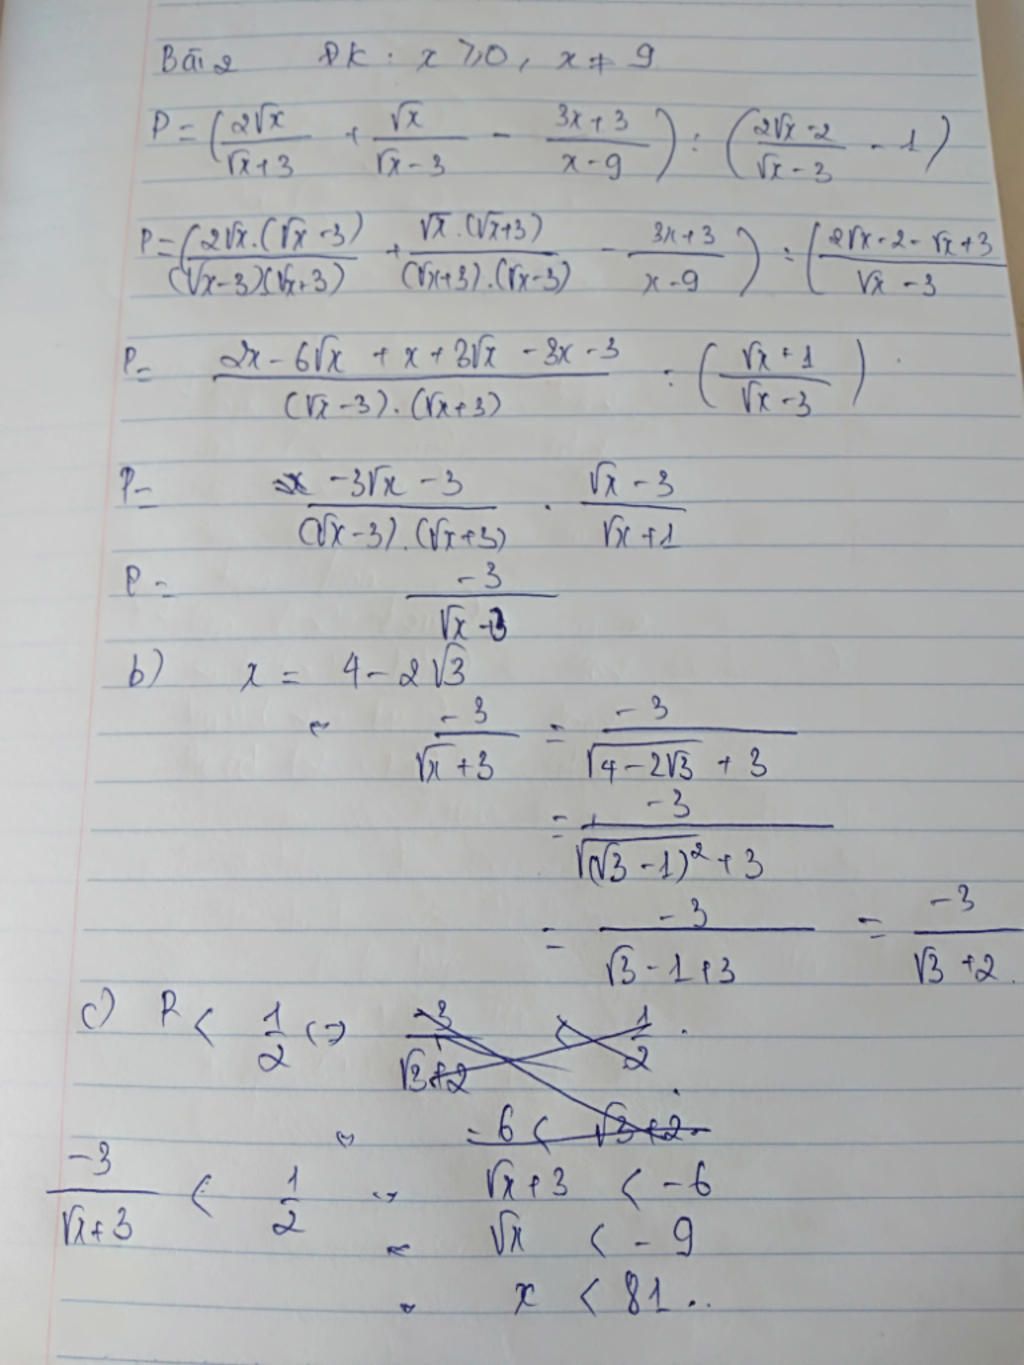 Bài 2 ĐK : x ≥ 0, x ≠ 9
P = (2√x/(√x+3) + √x/(√x-3) - (3x+3)/(x-9)) : ((2√x-2)/(√x-3) - 1)
P = (2√x.(√x-3)/((√x-3)(√x+3)) + √x.(√x+3)/((√x+3).(√x-3)) - (3x+3)/(x-9)) : ((2√x-2-√x+3)/(√x-3)
P = (2x-6√x+x+3√x-3x-3)/((√x-3).(√x+3)) : ((√x+1)/(√x-3))
P = (-3√x-3)/((√x-3).(√x+3)) . (√x-3)/(√x+1)
P = -3/(√x+3)
b) x = 4-2√3
-3/(√x+3) = -3/(√(4-2√3)+3)
= -3/(√((√3-1)²)+3)
= -3/(√3-1+3) = -3/(√3+2).
c) P < 1/2 <=> -3/(√3+2) < 1/2 .
-6 < √3+2
-3/(√x+3) < 1/2 √x+3 < -6
√x < -9
x < 81..